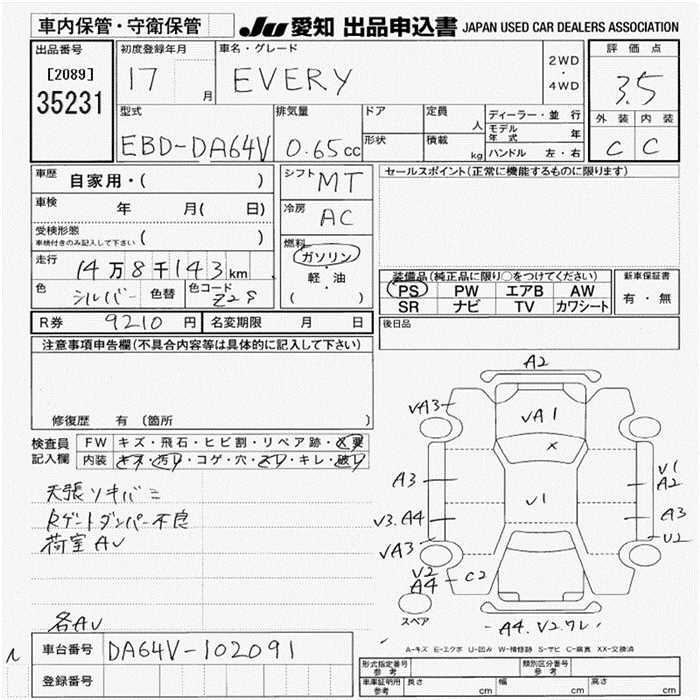 車内保管・守衛保管
JU 愛知 出品申込書 JAPAN USED CAR DEALERS ASSOCIATION
出品番号
[2089]
35231
初度登録年月
17 月
車名・グレード
EVERY
2WD
・
4WD
評価点
3.5
外装 内装
C C
型式
EBD-DA64V
排気量
0.65cc
ドア
形状
定員
人
積載
kg
ディーラー・並行
モデル年式 年
ハンドル 左・右
車歴
自家用・( )
車検
年 月( 日)
受検形態
車検付きのみ記入して下さい ( )
走行
14万8千143km
色
シルバー
色替
色コード
Z2S
シフト
MT
冷房
AC
燃料
ガソリン
・
軽・油
( )
セールスポイント(正常に機能するものに限ります)
装備品(純正品に限り○をつけてください)
PS PW エアB AW
SR ナビ TV カワシート
新車保証書
有・無
R券 9210円
名変期限 月 日
後日品
注意事項申告欄(不具合内容等は具体的に記入して下さい)
修復歴 有 〔箇所 〕
検査員記入欄
FW キズ・飛石・ヒビ割・リペア跡・X要
内装 キズ・汚レ・コゲ・穴・スレ・キレ・破レ
天張ソキバミ
Rゲートダンパー不良
荷室AU
各AU
A2
VA3
VA1
X
A3
V1
V1
A2
V3.A4
A3
VA3
U2
V2
A4
C2
スペア
A4.V2.ワレ
A-キズ E-エクボ U-凹み W-補修跡 S-サビ C-腐食 XX-交換済
車台番号
DA64V-102091
登録番号
形式指定番号
参考
類別区分番号
参考
車庫証明用
参考
長さ cm
幅 cm
高さ cm